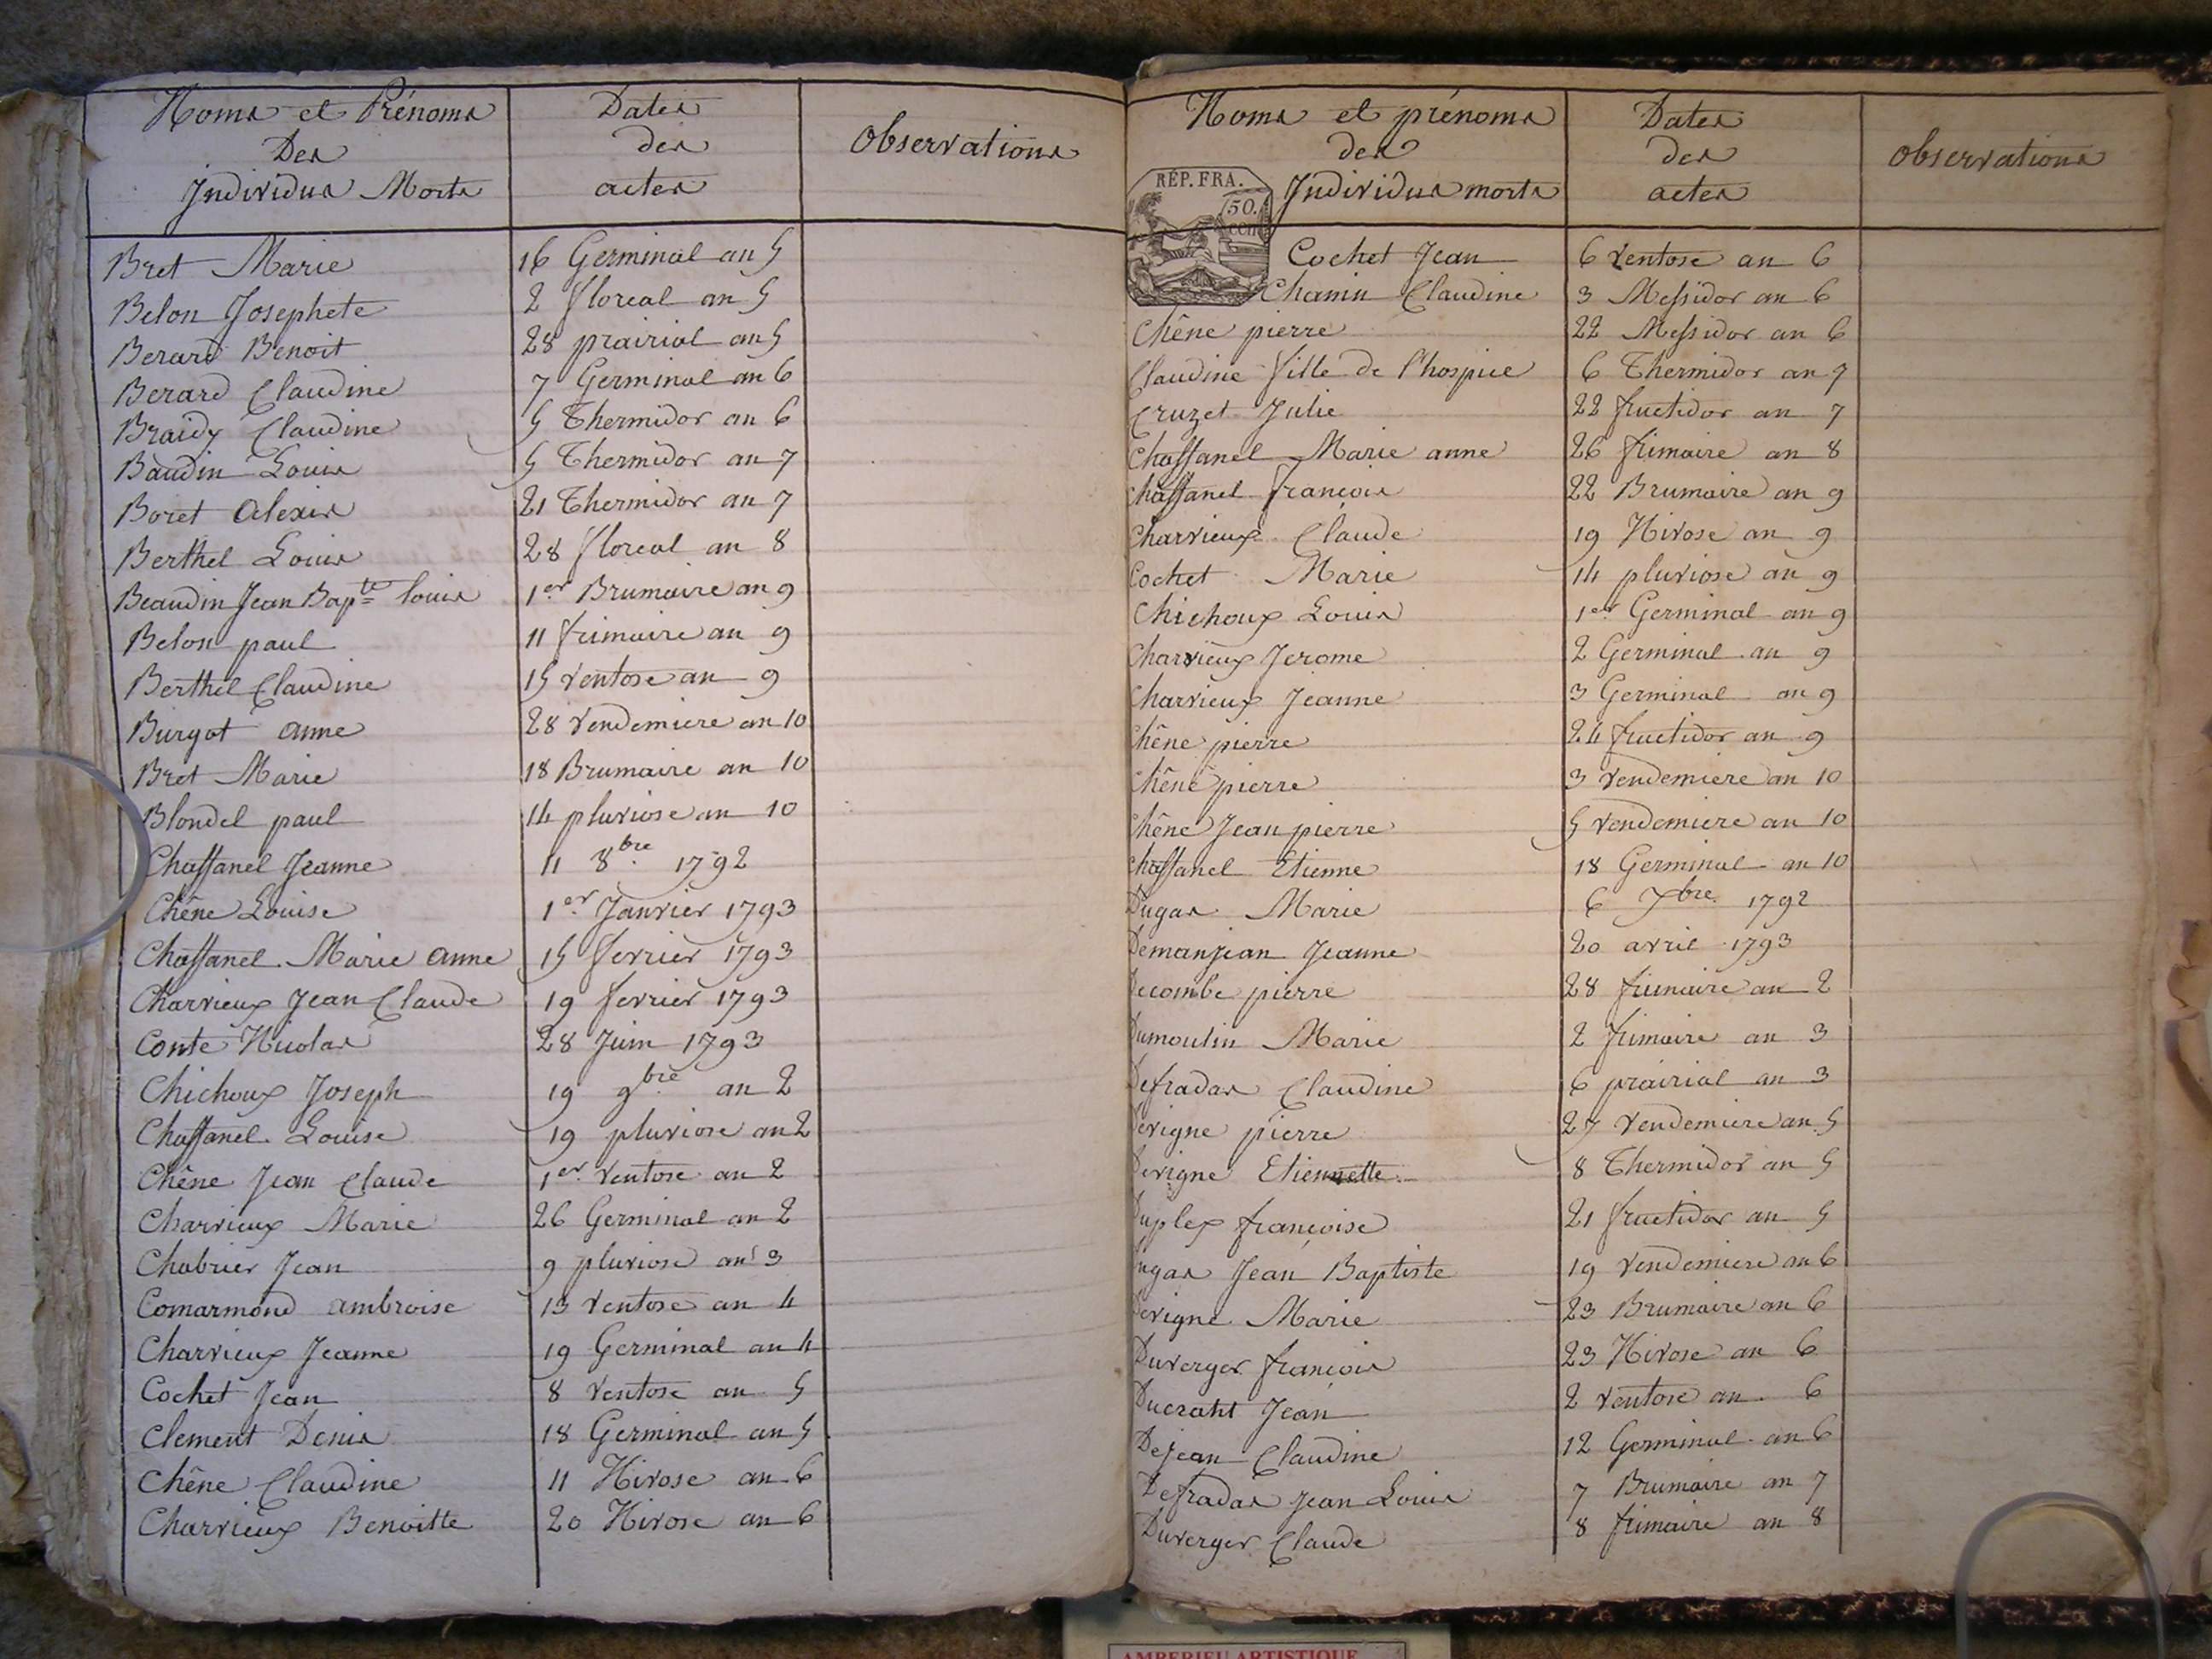 Noms et Prénoms
Des
Individus Morts
Dates
des
actes
Observations
Bret Marie 16 Germinal an 5
Belon Josephete 2 floreal an 5
Berard Benoit 28 prairial an 5
Berard Claudine 7 Germinal an 6
Braidy Claudine 5 Thermidor an 6
Baudin Louis 5 Thermidor an 7
Boret alexis 21 Thermidor an 7
Berthel Louis 28 floreal an 8
Beaudin Jean Bapte louis 1er Brumaire an 9
Belon paul 11 frimaire an 9
Berthel Claudine 15 ventose an 9
Burgat anne 28 vendemiere an 10
Bret Marie 18 Brumaire an 10
Blondel paul 14 pluviose an 10
Chassanel Jeanne 11 8bre 1792
Chêne Louise 1er Janvier 1793
Chassanel Marie anne 15 fevrier 1793
Charvieux Jean Claude 19 fevrier 1793
Conte Nicolas 28 Juin 1793
Chichoux Joseph 19 9bre an 2
Chassanel Louise 19 pluviose an 2
Chêne Jean Claude 1er ventose an 2
Charvieux Marie 26 Germinal an 2
Chabrier Jean 9 pluviose an 3
Comarmond ambroise 13 ventose an 4
Charvieux Jeanne 19 Germinal an 4
Cochet Jean 8 ventose an 5
Clement Denis 18 Germinal an 5
Chêne Claudine 11 Nivose an 6
Charvieux Benoitte 20 Nivose an 6
Noms et prénoms
des
Individus morts
Dates
des
actes
Observations
RÉP. FRA.
50.
cen
Cochet Jean 6 ventose an 6
Chanin Claudine 3 Messidor an 6
Chêne pierre 22 Messidor an 6
Claudine fille de l'hospice 6 Thermidor an 7
Cruzet Julie 22 fructidor an 7
Chassanel Marie anne 26 frimaire an 8
Chassanel françois 22 Brumaire an 9
Charvieux Claude 19 Nivose an 9
Cochet Marie 14 pluviose an 9
Chichoux Louis 1er Germinal an 9
Charvieux Jerome 2 Germinal an 9
Charvieux Jeanne 3 Germinal an 9
Chêne pierre 24 fructidor an 9
Chêne pierre 3 vendemiere an 10
Chêne Jean pierre 5 vendemiere an 10
Chassanel Etienne 18 Germinal an 10
Dugas Marie 6 7bre 1792
Demanjean Jeanne 20 avril 1793
Decombe pierre 28 frimaire an 2
Dumoulin Marie 2 frimaire an 3
Defradas Claudine 6 prairial an 3
Devigne pierre 27 vendemiere an 5
Devigne Etiennette 8 Thermidor an 5
Duplex françoise 21 fructidor an 5
Dugas Jean Baptiste 19 vendemiere an 6
Devigne Marie 23 Brumaire an 6
Duverger françois 23 Nivose an 6
Jean 2 ventose an 6
Dejean Claudine 12 Germinal an 6
Defradas Jean Louis 7 Brumaire an 7
Duverger Claude 8 frimaire an 8
AMBERIEU ARTISTIQUE